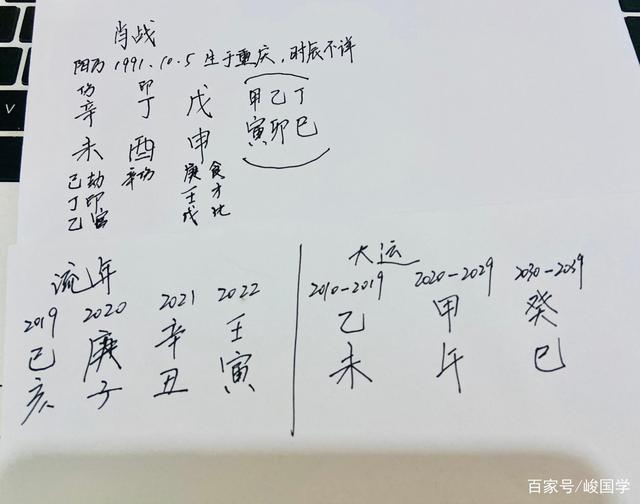 肖战
阳历 1991.10.5 生于重庆，时辰不详
伤 印
辛 丁 戊 甲乙丁
未 酉 申 寅卯巳
己劫 辛伤 庚食
丁印 壬才
乙官 戊比
流年
2019 2020 2021 2022
己 庚 辛 壬
亥 子 丑 寅
大运
2010-2019 2020-2029 2030-2039
乙 甲 癸
未 午 巳
百家号/峻国学